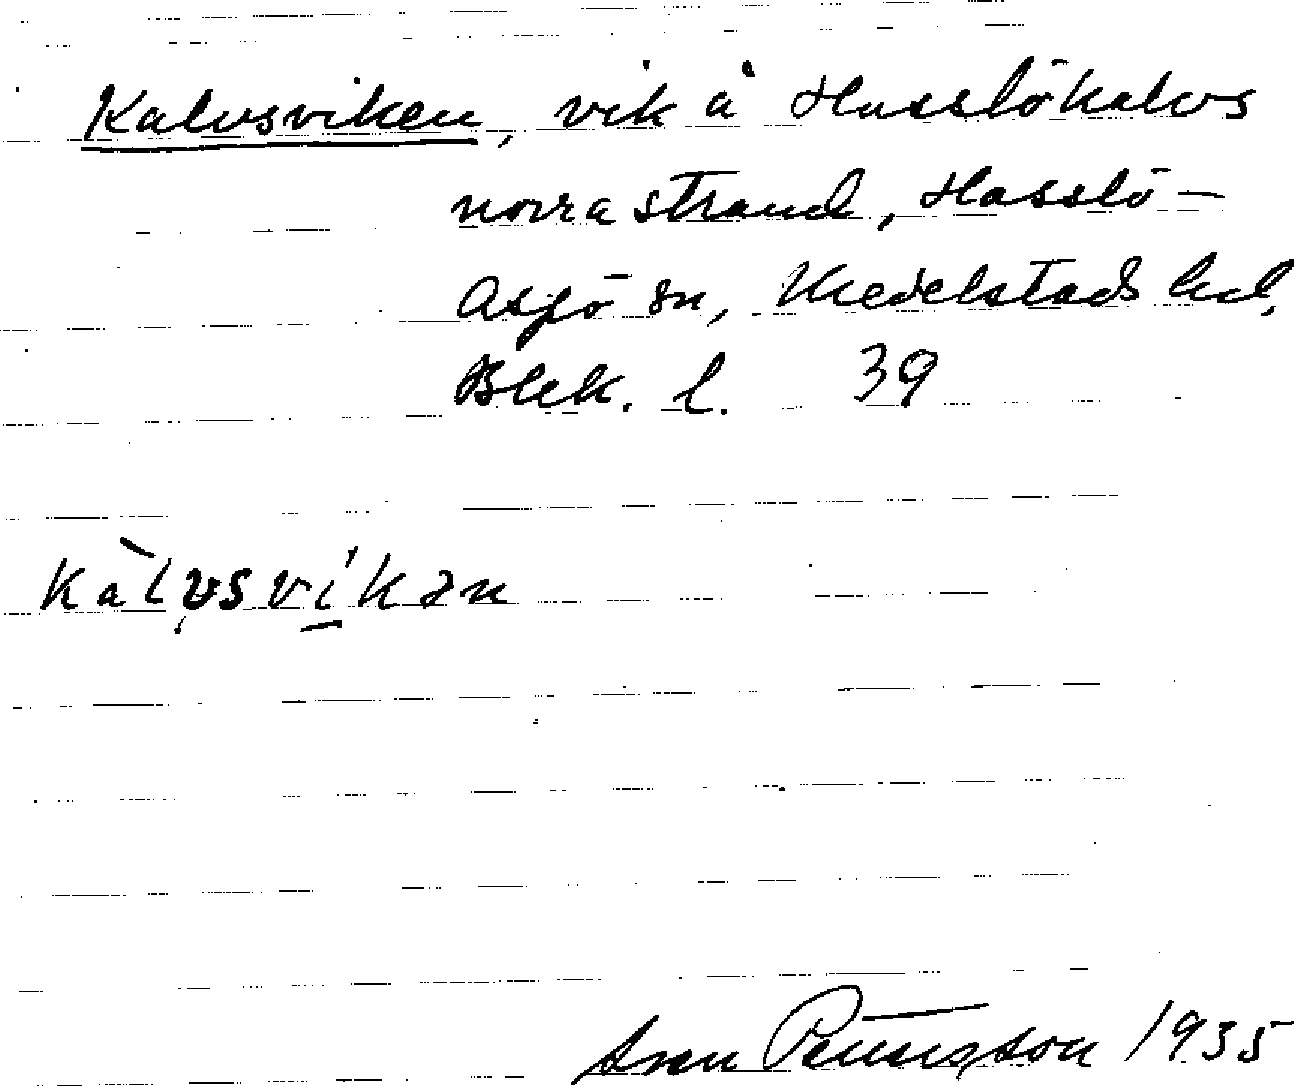 Kalvsviken, vik å Hasslökalvs
norra strand, Hasslö-
Aspö sn, Medelstads hd,
Blek. l. 39
kàlvsvíkən
Sven Pettersson 1935